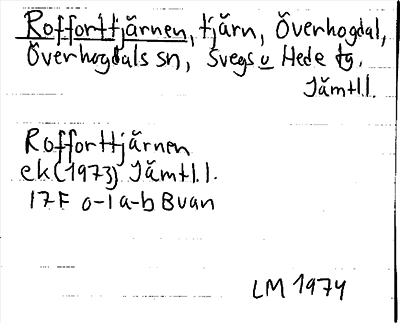 Rofforttjärnen, tjärn, Överhogdal,
Överhogdals sn, Svegs o Hede tg.
Jämtl.l.
Rofforttjärnen
ek(1973) Jämtl.l.
17F 0-1 a-b Buan
LM 1974